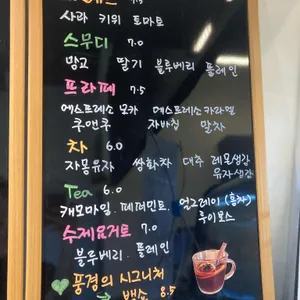 7.5
사과 키위 토마토
스무디 7.0
망고 딸기 블루베리 플레인
프라페 7.5
에스프레소 모카 에스프레소 카라멜
쿠앤쿠 자바칩 말차
차 6.0
자몽유자 쌍화차 대추 레몬생강
유자생강
Tea 6.0
캐모마일. 페퍼민트. 얼그레이 (홍차)
루이보스
수제요거트 7.0
블루베리. 플레인
풍경의 시그니처
→ 뱅쇼 8.5